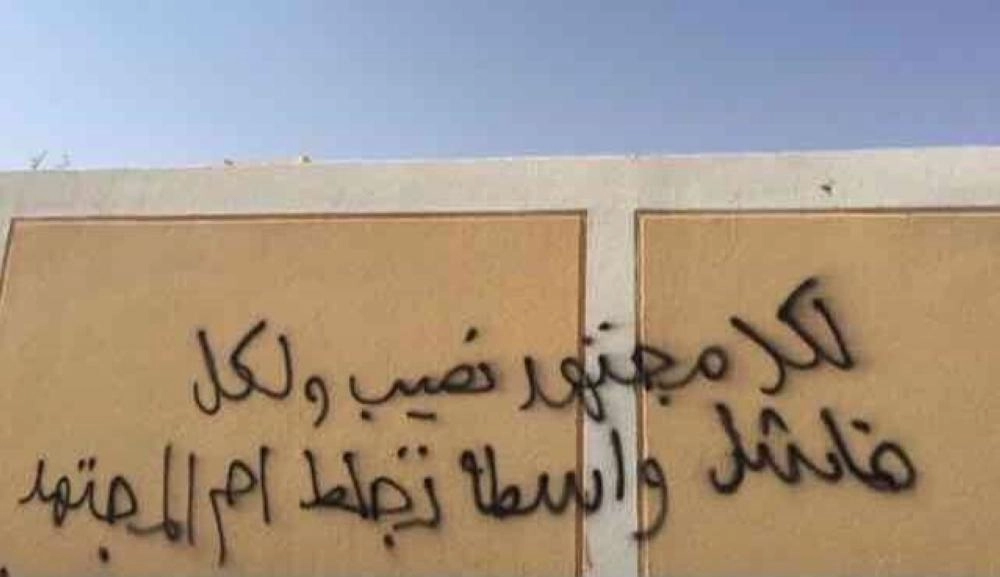 لكل مجتهد نصيب ولكل
فاشل واسطه تجلط ام المجتهد